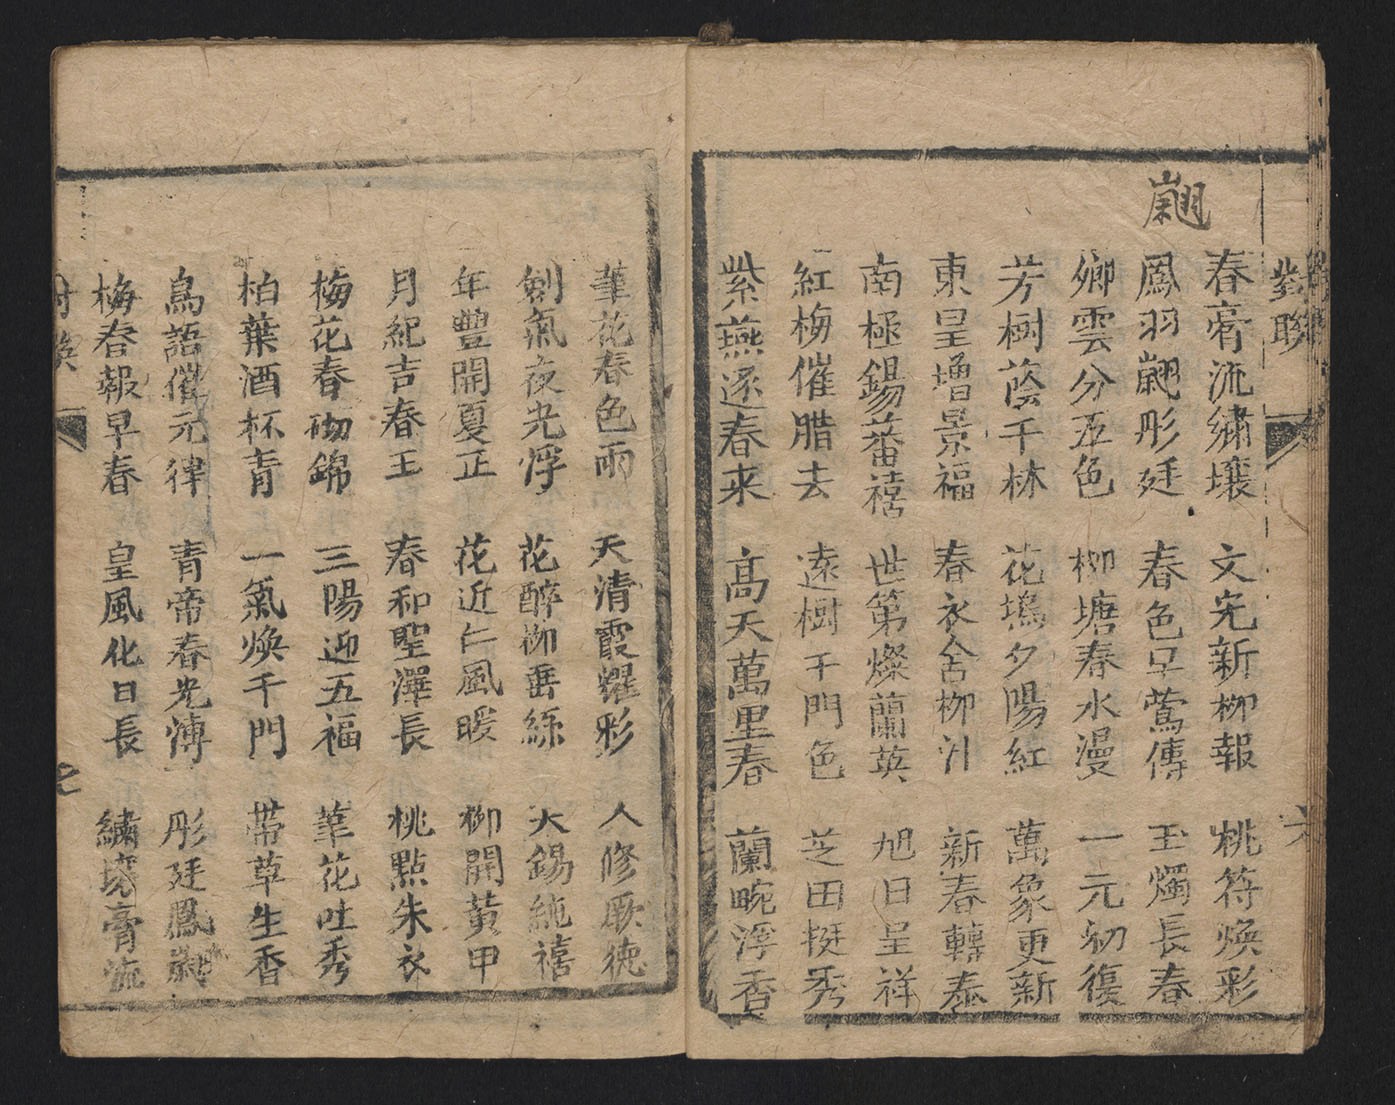 對聯 六
翽
春膏流繡壤 文宪新柳報 桃符煥彩
鳳羽翽彤廷 春色早鶯傳 玉燭長春
卿雲分五色 柳塘春水漫 一元初復
芳樹蔭千林 花塢夕陽紅 萬象更新
東皇增景福 春衣含柳汁 新春轉泰
南極錫蕃禧 世第燦蘭英 旭日呈祥
紅梅催腊去 遠樹千門色 芝田挺秀
紫燕逐春来 高天萬里春 蘭畹浮香
筆花春色雨 天清霞耀彩 人修厥德
劍氣夜光浮 花醉柳垂絲 天錫純禧
年豐開夏正 花近仁風暖 柳開黃甲
月紀吉春王 春和聖澤長 桃點朱衣
梅花春砌錦 三陽迎五福 筆花吐秀
柏葉酒杯青 一氣煥千門 帶草生香
鳥語催元律 青帝春光溥 彤廷鳳翽
梅春報早春 皇風化日長 繡壤膏流